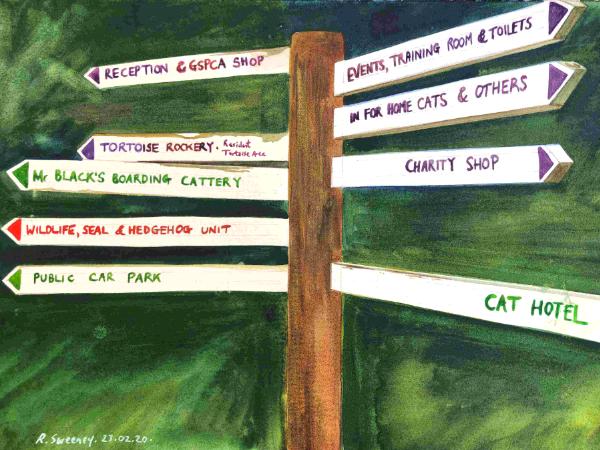 RECEPTION & GSPCA SHOP
TORTOISE ROCKERY. Resident
Tortoise Area
Mr BLACK'S BOARDING CATTERY
WILDLIFE, SEAL & HEDGEHOG UNIT
PUBLIC CAR PARK
EVENTS, TRAINING ROOM & TOILETS
IN FOR HOME CATS & OTHERS
CHARITY SHOP
CAT HOTEL
R. Sweeney. 23.02.20.